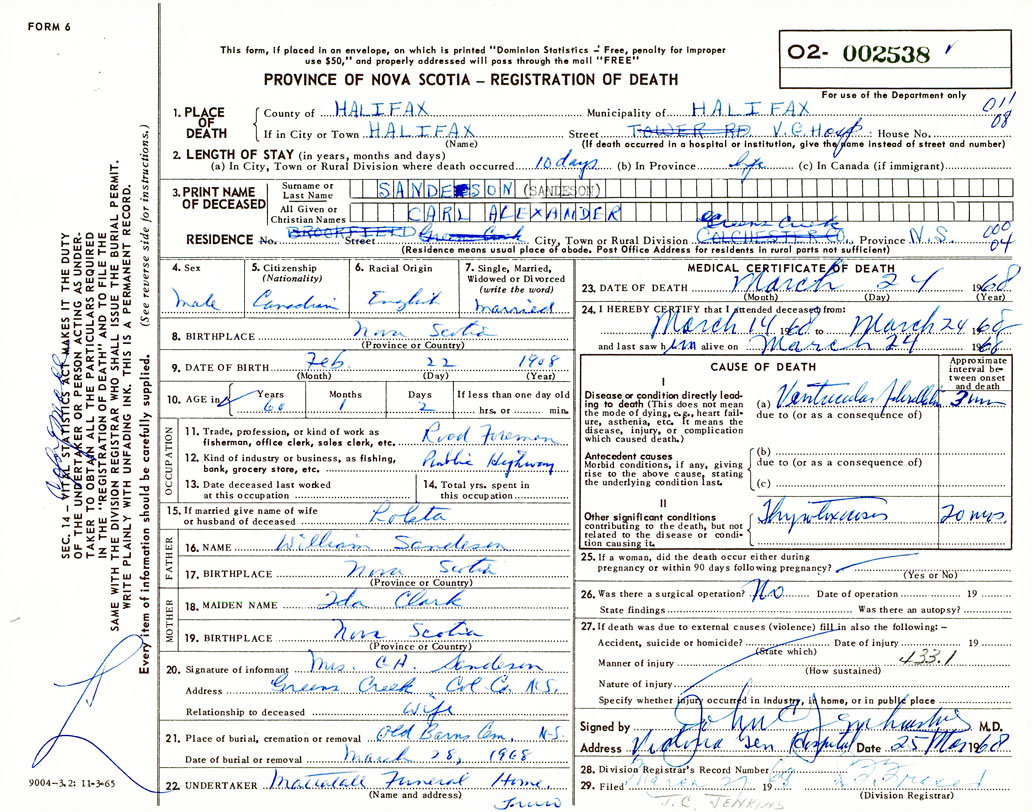 FORM 6
This form, if placed in an envelope, on which is printed "Dominion Statistics - Free, penalty for improper
use $50," and properly addressed will pass through the mail "FREE"
PROVINCE OF NOVA SCOTIA – REGISTRATION OF DEATH
O2- 002538
For use of the Department only
011
08
1. PLACE OF DEATH
County of HALIFAX Municipality of HALIFAX
If in City or Town HALIFAX Street TOWER RD V.G. Hosp : House No.
(Name) (If death occurred in a hospital or institution, give the name instead of street and number)
2. LENGTH OF STAY (in years, months and days)
(a) In City, Town or Rural Division where death occurred 10 days (b) In Province life (c) In Canada (if immigrant)
3. PRINT NAME OF DECEASED
Surname or Last Name SANDESON (SANDESON)
All Given or Christian Names CARL ALEXANDER
Greens Creek
RESIDENCE No. BROOKFIELD Street City, Town or Rural Division COLCHESTER CO. Province N.S.
000
04
(Residence means usual place of abode. Post Office Address for residents in rural parts not sufficient)
4. Sex
male
5. Citizenship (Nationality)
Canadian
6. Racial Origin
English
7. Single, Married, Widowed or Divorced (write the word)
married
8. BIRTHPLACE Nova Scotia
(Province or Country)
9. DATE OF BIRTH Feb. 22 1908
(Month) (Day) (Year)
10. AGE in Years 60 Months 1 Days 2 If less than one day old hrs. or min.
OCCUPATION
11. Trade, profession, or kind of work as fisherman, office clerk, sales clerk, etc. Road Foreman
12. Kind of industry or business, as fishing, bank, grocery store, etc. Public Highway
13. Date deceased last worked at this occupation
14. Total yrs. spent in this occupation
15. If married give name of wife or husband of deceased Roleta
FATHER
16. NAME William Sandeson
17. BIRTHPLACE Nova Scotia
(Province or Country)
MOTHER
18. MAIDEN NAME Ida Clark
19. BIRTHPLACE Nova Scotia
(Province or Country)
20. Signature of informant Mrs. C.A. Sandeson
Address Greens Creek Col. Co. N.S.
Relationship to deceased Wife
21. Place of burial, cremation or removal Old Barns Cem. N.S.
Date of burial or removal March 28, 1968
22. UNDERTAKER Mattatall Funeral Home,
(Name and address) Truro
MEDICAL CERTIFICATE OF DEATH
23. DATE OF DEATH March 24 1968
(Month) (Day) (Year)
24. I HEREBY CERTIFY that I attended deceased from:
March 14 1968 to March 24 1968
and last saw him alive on March 24 1968
CAUSE OF DEATH
Approximate interval between onset and death
I
Disease or condition directly leading to death (This does not mean the mode of dying, e.g., heart failure, asthenia, etc. It means the disease, injury, or complication which caused death.)
(a) Ventricular fibrillation 3 min
due to (or as a consequence of)
Antecedent causes
Morbid conditions, if any, giving rise to the above cause, stating the underlying condition last.
(b)
due to (or as a consequence of)
(c)
II
Other significant conditions contributing to the death, but not related to the disease or condition causing it.
Thyrotoxicosis 20 mos.
25. If a woman, did the death occur either during
pregnancy or within 90 days following pregnancy?
(Yes or No)
26. Was there a surgical operation? No Date of operation 19
State findings Was there an autopsy?
27. If death was due to external causes (violence) fill in also the following: –
Accident, suicide or homicide? Date of injury 19
(State which)
Manner of injury 433.1
(How sustained)
Nature of injury
Specify whether injury occurred in industry, in home, or in public place
Signed by John C. M.D.
Address Victoria Gen. Hospital Date 25 Mar 1968
28. Division Registrar's Record Number
29. Filed 19 68
(Division Registrar)
J.C. JENKINS
9004-3.2: 11-3-65
SEC. 14 – VITAL STATISTICS ACT MAKES IT THE DUTY
OF THE UNDERTAKER OR PERSON ACTING AS UNDER-
TAKER TO OBTAIN ALL THE PARTICULARS REQUIRED
IN THE "REGISTRATION OF DEATH" AND TO FILE THE
SAME WITH THE DIVISION REGISTRAR WHO SHALL ISSUE THE BURIAL PERMIT.
WRITE PLAINLY WITH UNFADING INK. THIS IS A PERMANENT RECORD.
Every item of information should be carefully supplied. (See reverse side for instructions.)